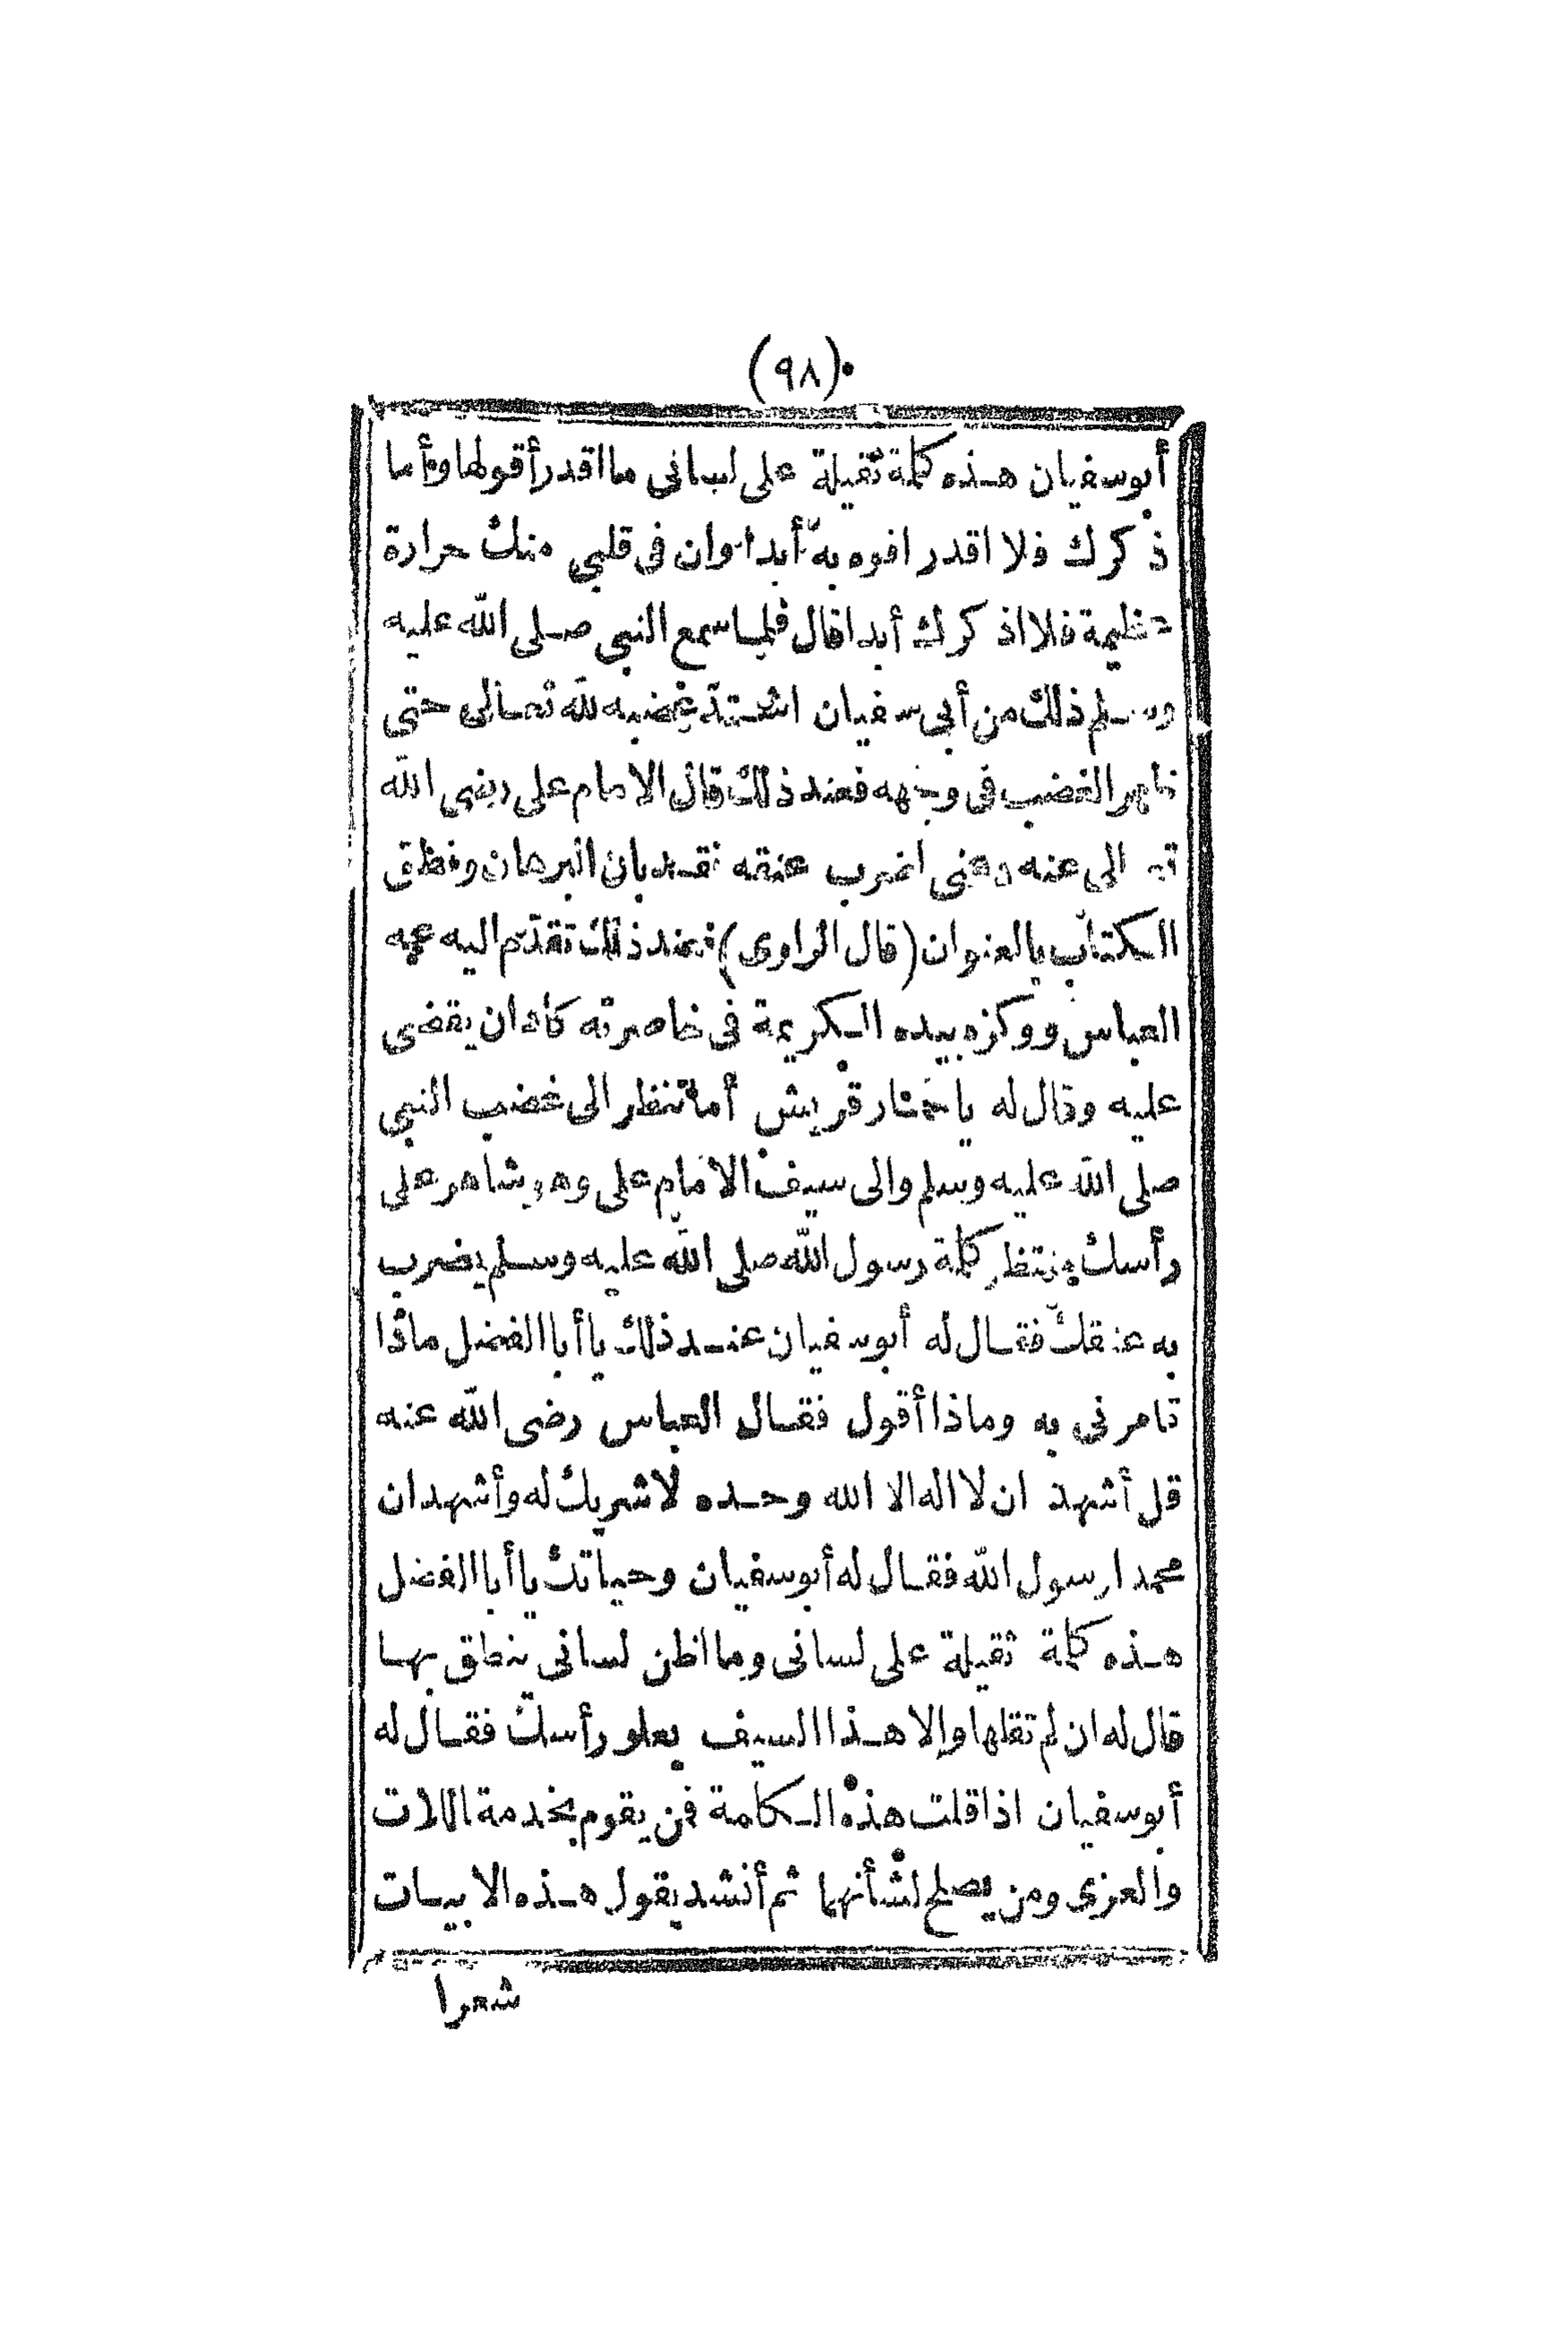 (٩٨)
أبوسفيان هذه كلمة ثقيلة على لسانى مااقدر أقولها وأما
ذكرك فلا اقدر افوه به أبدا وان فى قلبي منك حرارة
عظيمة فلا اذكرك أبدا قال فلما سمع النبي صلى الله عليه
وسلم ذلك من أبى سفيان اشتد غضبه لله تعالى حتى
ظهر الغضب فى وجهه فعند ذلك قال الامام على رضى الله
تعالى عنه دعنى اضرب عنقه فقد بان البرهان ونطق
الكتاب بالعنوان (قال الراوى) فعند ذلك تقدم اليه عمه
العباس ووكزه بيده الكريمة فى خاصرته كاد ان يقضى
عليه وقال له يا قريش أما تنظر الى غضب النبي
صلى الله عليه وسلم والى سيف الامام على وهو شاهر على
رأسك ينتظر كلمة رسول الله صلى الله عليه وسلم يضرب
به عنقك فقال له أبوسفيان عند ذلك يا أبا الفضل ماذا
تامرنى به وماذا أقول فقال العباس رضى الله عنه
قل أشهد ان لا اله الا الله وحده لا شريك له وأشهد ان
محمدا رسول الله فقال له أبوسفيان وحياتك يا أبا الفضل
هذه كلمة ثقيلة على لسانى وما اظن لسانى ينطق بها
قال له ان لم تقلها والا هذا السيف يعلو رأسك فقال له
أبوسفيان اذا قلت هذه الكلمة فمن يقوم بخدمة اللات
والعزى ومن يصلح لشأنهما ثم أنشد يقول هذه الابيات
شعرا